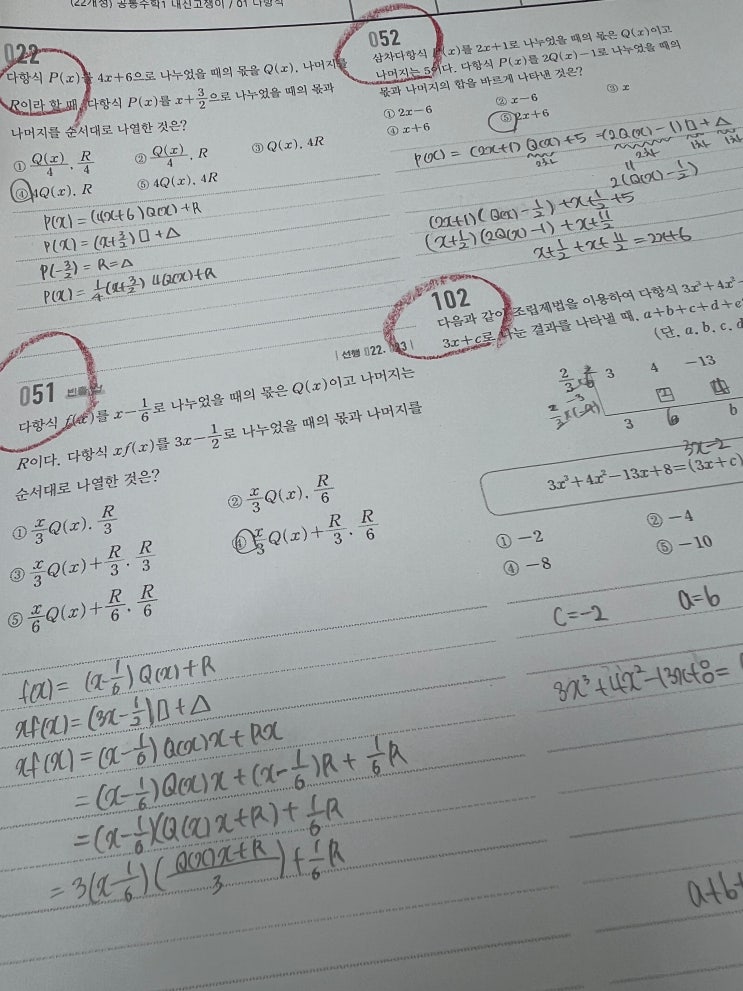 (22개정) 공통수학1 내신고쟁이 / 01 다항식
022
다항식 P(x)를 4x+6으로 나누었을 때의 몫을 Q(x), 나머지를
R이라 할 때, 다항식 P(x)를 x+3/2으로 나누었을 때의 몫과
나머지를 순서대로 나열한 것은?
① Q(x)/4, R/4 ② Q(x)/4, R ③ Q(x), 4R
④ 4Q(x), R ⑤ 4Q(x), 4R
P(x) = (4x+6)Q(x)+R
P(x) = (x+3/2)□+△
P(-3/2) = R = △
P(x) = 1/4(x+3/2) 4Q(x)+R
선행 022.
051 빈출
다항식 f(x)를 x-1/6로 나누었을 때의 몫은 Q(x)이고 나머지는
R이다. 다항식 xf(x)를 3x-1/2로 나누었을 때의 몫과 나머지를
순서대로 나열한 것은?
① x/3Q(x), R/3 ② x/3Q(x), R/6
③ x/3Q(x)+R/3, R/3 ④ x/3Q(x)+R/3, R/6
⑤ x/6Q(x)+R/6, R/6
f(x) = (x-1/6)Q(x)+R
xf(x) = (3x-1/2)□+△
xf(x) = (x-1/6)Q(x)x+Rx
= (x-1/6)Q(x)x+(x-1/6)R+1/6R
= (x-1/6)(Q(x)x+R)+1/6R
= 3(x-1/6)(Q(x)x+R/3)+1/6R
052
삼차다항식 P(x)를 2x+1로 나누었을 때의 몫은 Q(x)이고
나머지는 5이다. 다항식 P(x)를 2Q(x)-1로 나누었을 때의
몫과 나머지의 합을 바르게 나타낸 것은?
① 2x-6 ② x-6 ③ x
④ x+6 ⑤ 2x+6
P(x) = (2x+1)Q(x)+5 = (2Q(x)-1)□+△
2차 2차 1차 1차
2(Q(x)-1/2)
(2x+1)(Q(x)-1/2)+x+1/2+5
(x+1/2)(2Q(x)-1)+x+11/2
x+1/2+x+11/2=2x+6
102
다음과 같이 조립제법을 이용하여 다항식 3x³+4x²-
3x+c로 나눈 결과를 나타낼 때, a+b+c+d+e
(단, a, b, c, d
3 4 -13
3 6 b
3x-2
3x³+4x²-13x+8=(3x+c)
① -2 ② -4
④ -8 ⑤ -10
c=-2 a=6
3x³+4x²-13x+8=
a+b+